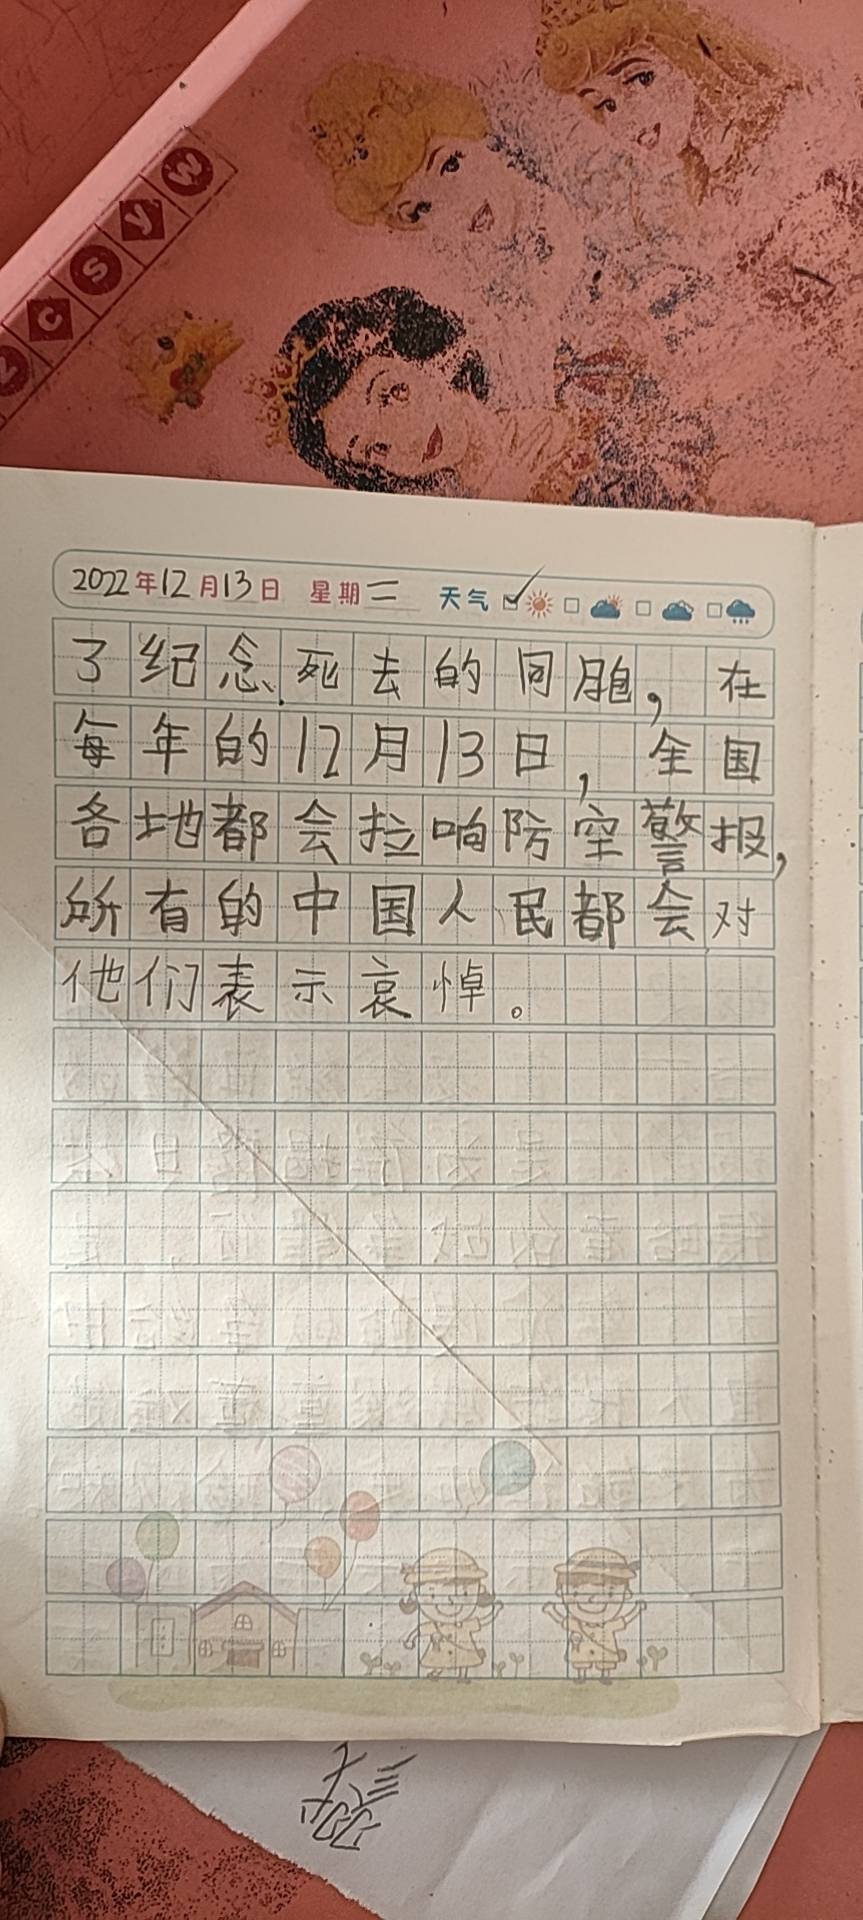 w
y
s
c
z
2022年12月13日 星期二 天气
了纪念死去的同胞，在
每年的12月13日，全国
各地都会拉响防空警报，
所有的中国人民都会对
他们表示哀悼。